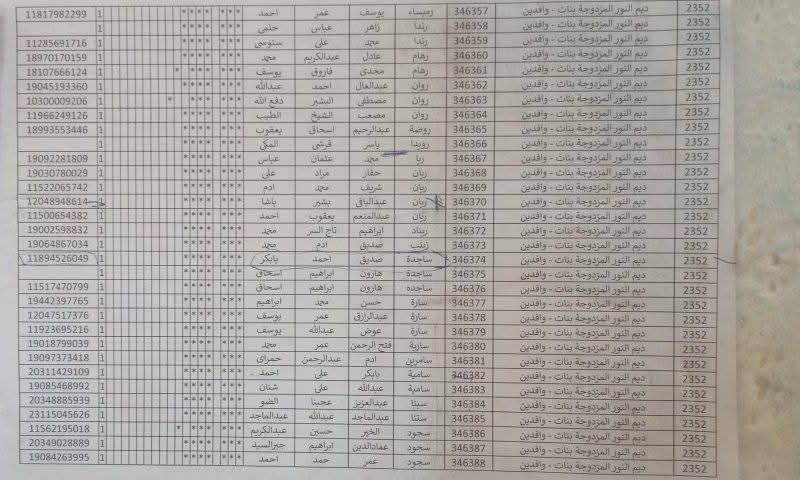 2352 ديم النور المزدوجة بنات - وافدين 346357 رميساء يوسف عمر احمد **** *** 1 11817982299
2352 ديم النور المزدوجة بنات - وافدين 346358 رندا زاهر عباس حلمى **** *** 1
2352 ديم النور المزدوجة بنات - وافدين 346359 رندا محمد على سنوسى **** *** 1 11285691716
2352 ديم النور المزدوجة بنات - وافدين 346360 رهام عادل عبدالكريم محمد **** *** 1 18970170159
2352 ديم النور المزدوجة بنات - وافدين 346361 رهام مجدى فاروق يوسف * **** *** 1 18107666124
2352 ديم النور المزدوجة بنات - وافدين 346362 روان عبدالعال احمد عبدالله **** *** 1 19045193360
2352 ديم النور المزدوجة بنات - وافدين 346363 روان مصطفى البشير دفع الله * **** *** 1 10300009206
2352 ديم النور المزدوجة بنات - وافدين 346364 روان مصعب الشيخ الطيب **** *** 1 11966249126
2352 ديم النور المزدوجة بنات - وافدين 346365 روضة عبدالرحيم اسحاق يعقوب **** *** 1 18993553446
2352 ديم النور المزدوجة بنات - وافدين 346366 رويدا ياسر قرشى المكى **** *** 1
2352 ديم النور المزدوجة بنات - وافدين 346367 ريا محمد عثمان عباس **** *** 1 19092281809
2352 ديم النور المزدوجة بنات - وافدين 346368 ريان حفار مراد على **** *** 1 19030780029
2352 ديم النور المزدوجة بنات - وافدين 346369 ريان شريف محمد ادم **** *** 1 11522065742
2352 ديم النور المزدوجة بنات - وافدين 346370 ريان عبدالباقى بشير باشا **** *** 1 12048948614
2352 ديم النور المزدوجة بنات - وافدين 346371 ريان عبدالمنعم يعقوب احمد **** *** 1 11500654382
2352 ديم النور المزدوجة بنات - وافدين 346372 ريناد ابراهيم تاج السر محمد **** *** 1 19002598832
2352 ديم النور المزدوجة بنات - وافدين 346373 زينب صديق ادم محمد **** *** 1 19064867034
2352 ديم النور المزدوجة بنات - وافدين 346374 ساجدة صديق احمد بابكر **** *** 1 11894526049
2352 ديم النور المزدوجة بنات - وافدين 346375 ساجدة هارون ابراهيم اسحاق **** *** 1
2352 ديم النور المزدوجة بنات - وافدين 346376 ساجده هارون ابراهيم اسحاق **** *** 1 11517470799
2352 ديم النور المزدوجة بنات - وافدين 346377 سارة حسن محمد ابراهيم **** *** 1 19442397765
2352 ديم النور المزدوجة بنات - وافدين 346378 سارة عبدالرازق عمر يوسف **** *** 1 12047517376
2352 ديم النور المزدوجة بنات - وافدين 346379 سارة عوض عبدالله يوسف **** *** 1 11923695216
2352 ديم النور المزدوجة بنات - وافدين 346380 سارية فتح الرحمن عمر محمد **** *** 1 19018799039
2352 ديم النور المزدوجة بنات - وافدين 346381 سامرين ادم عبدالرحمن حمراى **** *** 1 19097373418
2352 ديم النور المزدوجة بنات - وافدين 346382 سامية بابكر على احمد **** *** 1 20311429109
2352 ديم النور المزدوجة بنات - وافدين 346383 سامية عبدالله على شنان **** *** 1 19085468992
2352 ديم النور المزدوجة بنات - وافدين 346384 سبنا عبدالعزيز عجبنا الضو **** *** 1 20348885939
2352 ديم النور المزدوجة بنات - وافدين 346385 ستنا عبدالماجد عبدالله عبدالماجد **** *** 1 23115045626
2352 ديم النور المزدوجة بنات - وافدين 346386 سجود الخير حسين عبدالكريم * **** *** 1 11562195018
2352 ديم النور المزدوجة بنات - وافدين 346387 سجود عمادالدين ابراهيم جبرالسيد **** *** 1 20349028889
2352 ديم النور المزدوجة بنات - وافدين 346388 سجود عمر حمد احمد **** *** 1 19084263995